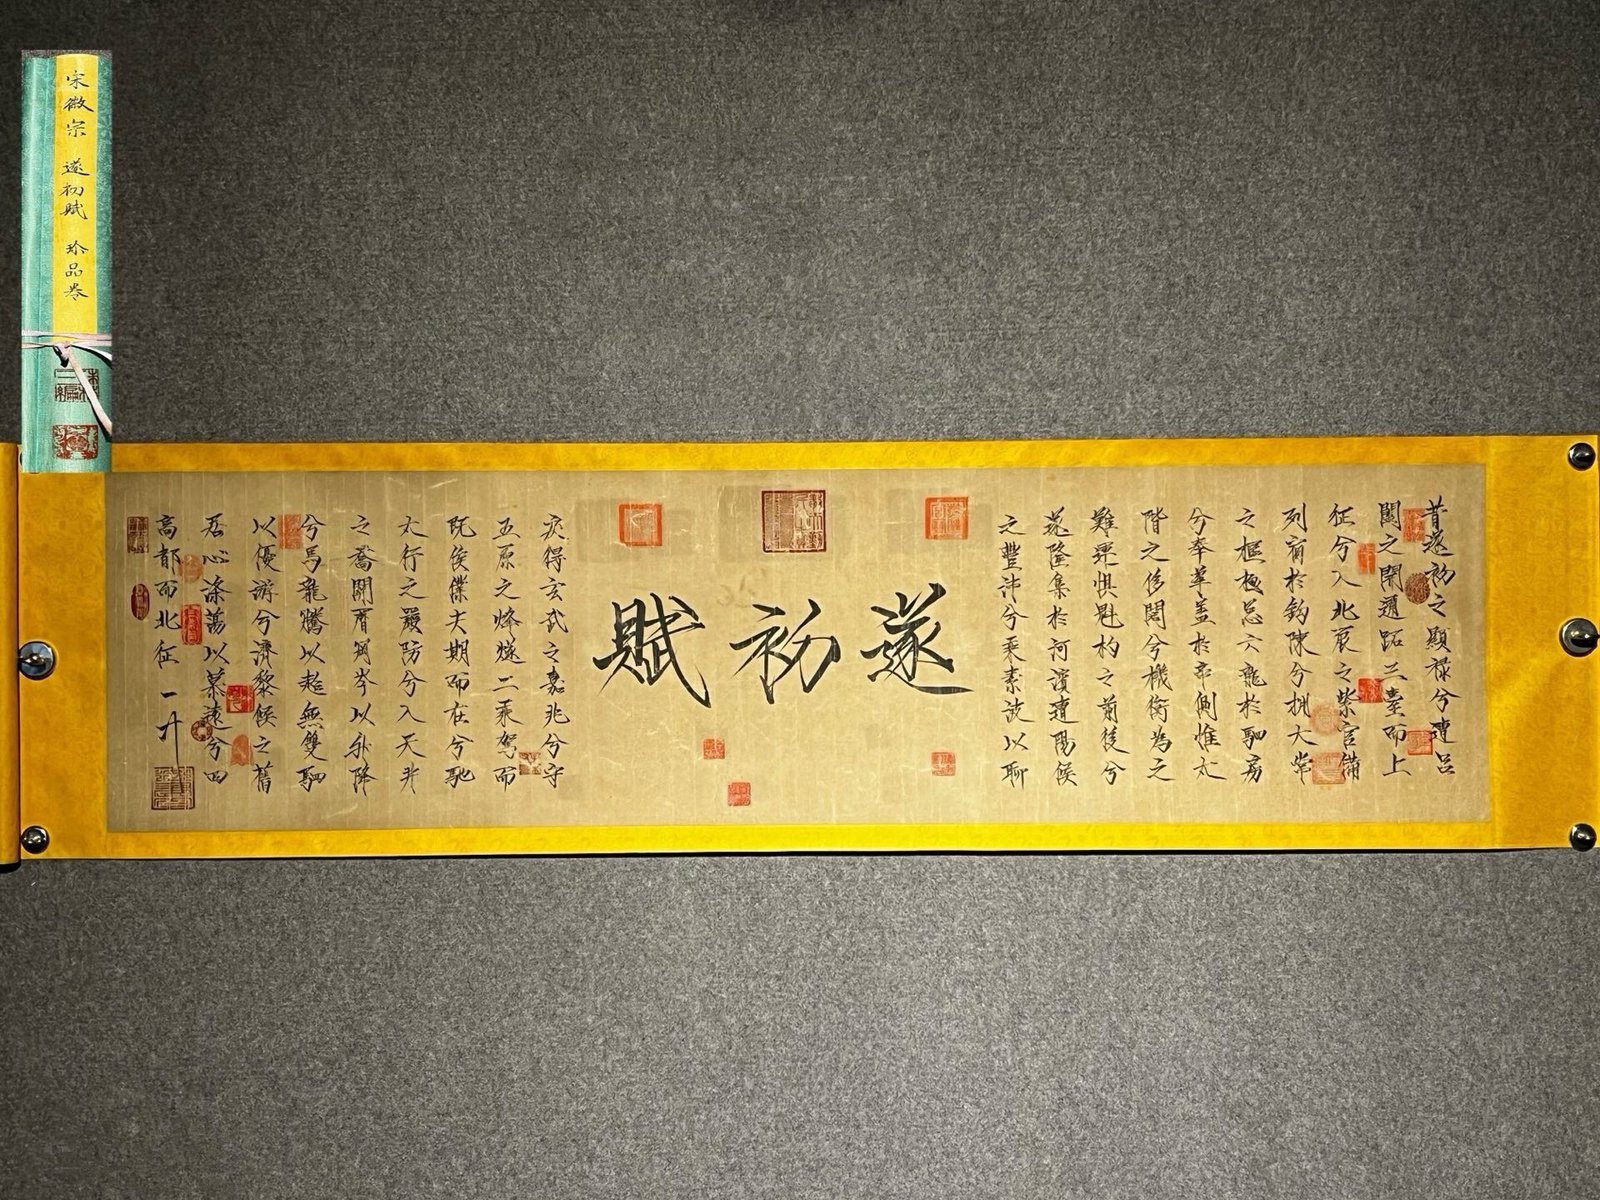 宋徽宗 遂初賦 珍品卷
昔遂初之顯祿兮遭呂
闔之開通跖三臺而上
征兮入北辰之紫宮備
列宿於鉤陳兮擁大常
之樞極总六龍於駟房
兮奉華蓋於帝側惟太
階之侈闊兮機衡為之
難運惧魁杓之前後兮
遂隆集於河濱遭陽候
之豐沛兮乘素波以聊
遂初賦
戾得玄武之嘉兆兮守
五原之烽燧二乘駕而
既俟僕夫期而在兮馳
太行之嚴防兮入天井
之喬關歷岡岑以升降
兮馬龍騰以超無雙駟
以優游兮濟黎候之舊
居心滌蕩以慕遠兮回
高都而北征